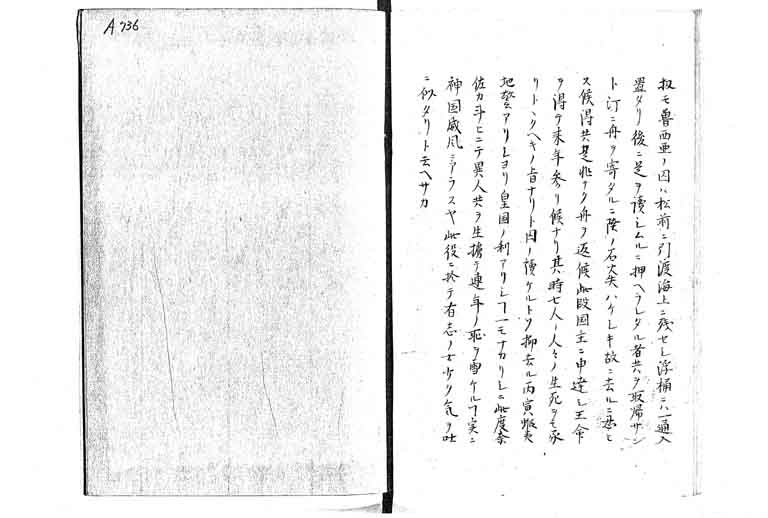 扨モ魯西亜ノ囚ハ松前ニ引渡海上ニ残セシ浮桶ニハ一通入
置タリ後ニ是ヲ読シムルニ押ヘラレタル者共ヲ取帰サン
ト汀ニ舟ヲ寄タルニ陸ノ石火矢ハケシキ故ニ去ルニ
ス候得共是非ナク舟ヲ返候此段国主ニ申達シ王命
ヲ得テ来年参リ候ナリ其時七人ノ人々ノ生死ヲモ承
リトヽクヘキノ旨ナリト囚ノ読ケルトソ抑去ル丙寅蝦夷
地 アリシヨリ皇国ノ利アリシ一モナカリシニ此度奈
佐カ斗ヒニテ異人共ヲ生擒テ連年ノ恥ヲ雪ケル実ニ
神国威風 ラスヤ此役ニ於テ有志ノ士少ク気ヲ吐
ニ似タリト云ヘサカ
A 736